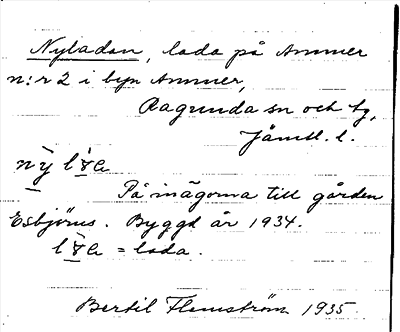 Nyladan, lada på Ammer
n:r 2 i byn Ammer,
Ragunda sn och tg,
Jämtl. l.
På inägorna till gården
Esbjörns. Byggd år 1934.
= lada.
Bertil Flemström 1935